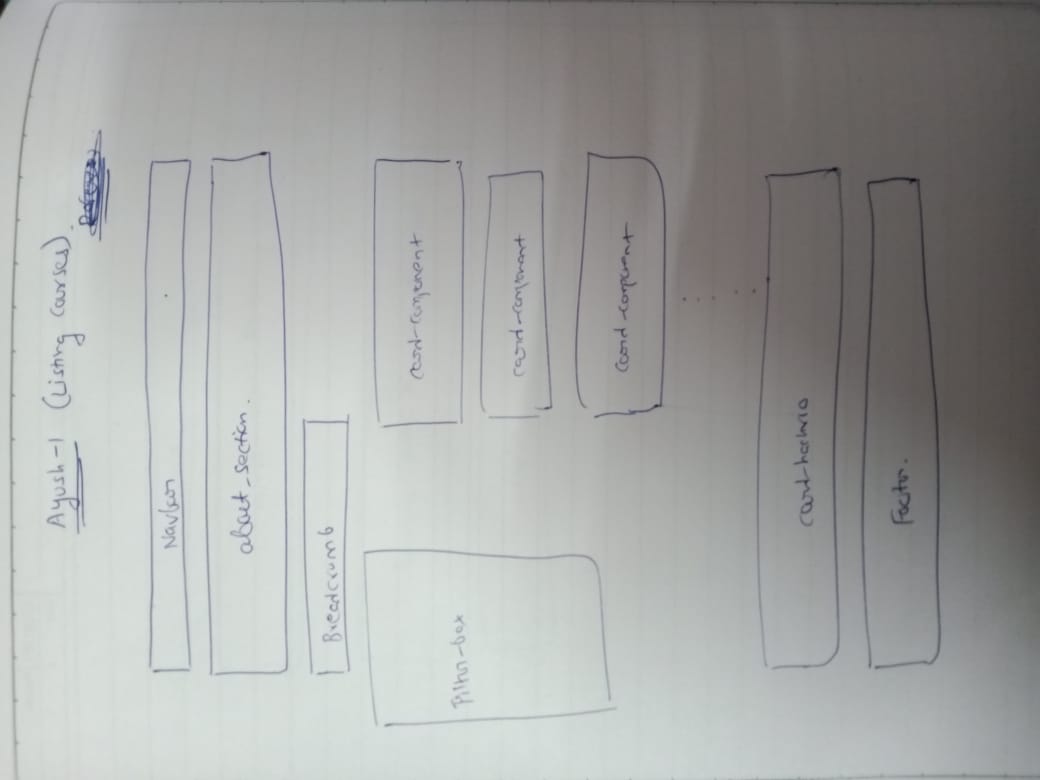 Ayush-1 (Listing courses).
Navbar
about_section.
Breadcrumb
Filter-box
card-component
card-component
card-component
Footer.